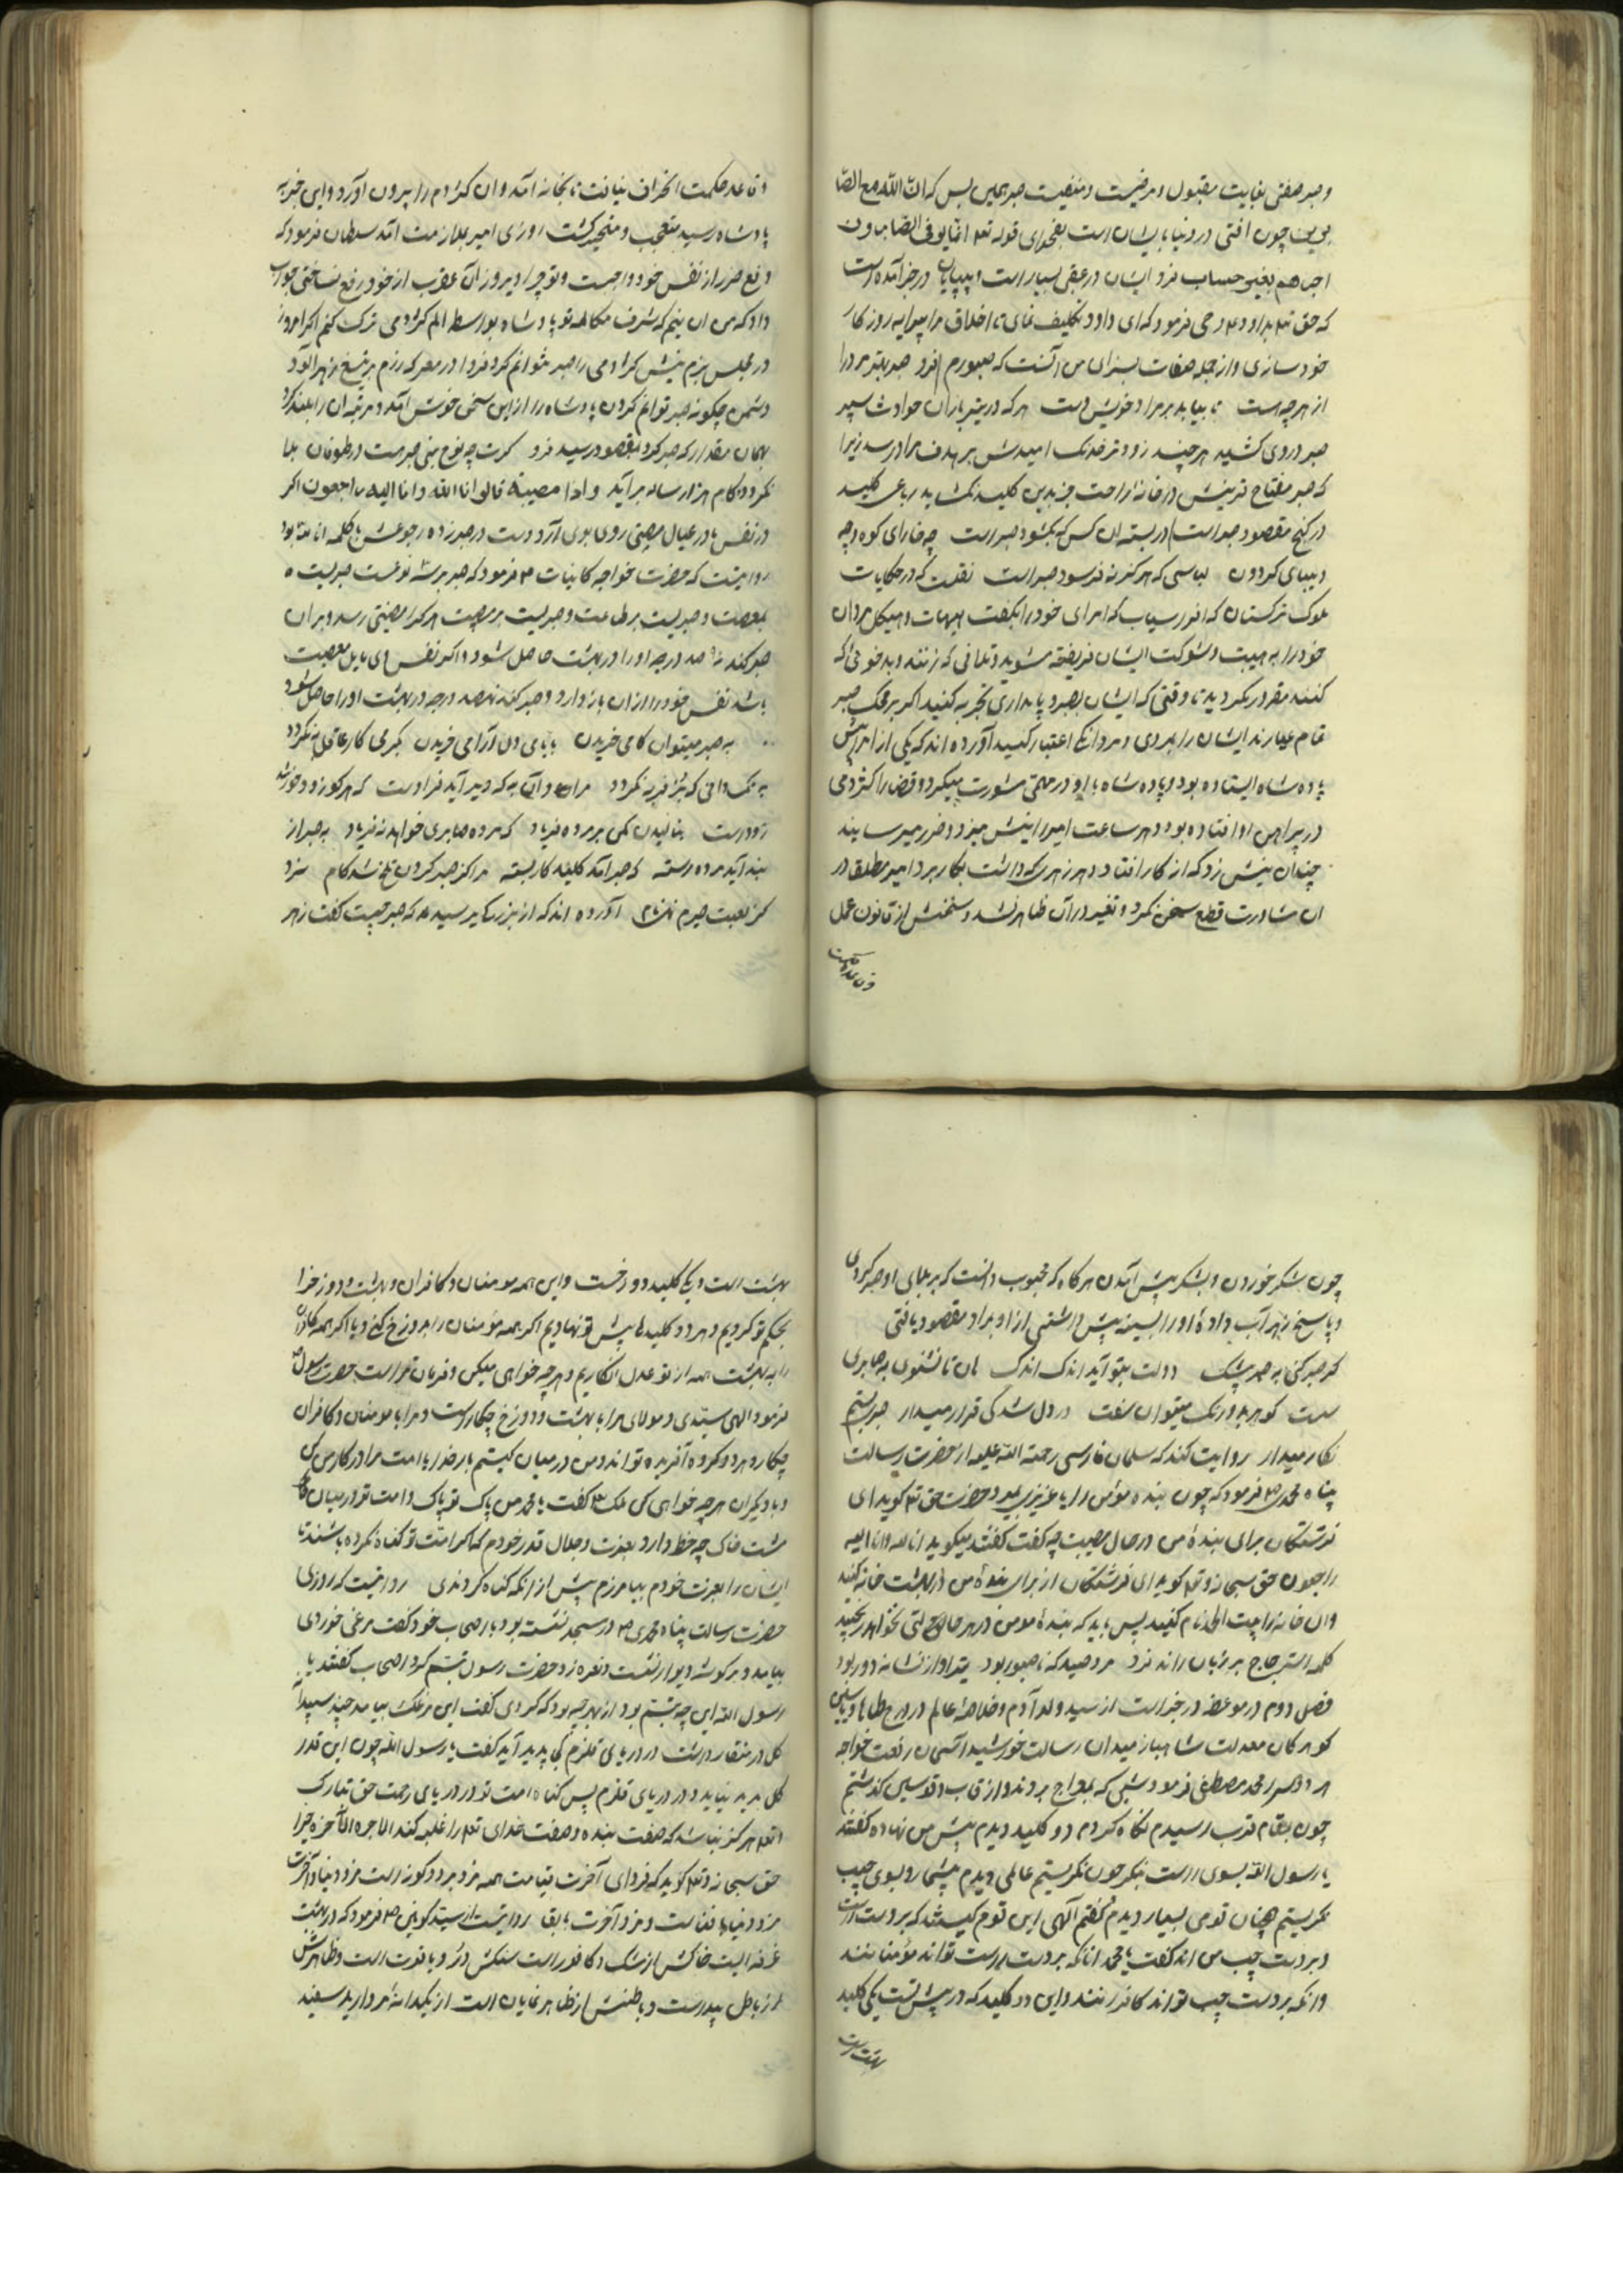 و صبر صفتی بغایت مقبول و مرضیست و منفعت صبر همین بس که ان الله مع الصا
برین چون افتی در دنیا بایشان است بفحوای قوله تعه انما یوفی الصابرون
اجرهم بغیر حساب مزد ایشان در عقبی بسیار است و بیپایان در خبر آمده است
که حق تعه بداود عه وحی فرمود که ای داود تکلیف نمای تا اخلاق مرا پیرایه روزکار
خود سازی و از جمله صفات بسزای من آنست که صبورم فرد صبر بهتر مرد را
از هر چه هست تا بیابد بر مراد خویش دست هر که در تیر باران حوادث سپر
صبر در روی کشید هر چند زودتر خدنک امیدش بر هدف مراد رسد زیرا
که صبر مفتاح فرجش در خانه راحت جز بدین کلید نکشاید رباعی کلید
در کنج مقصود صبر است در بسته ان کس که بکشود صبر است چه خارای کوه و چه
دیبای کردون لباسی که هرکز نه فرسود صبر است نقلست که در حکایات
ملوک ترکستان که افراسیاب که امرای خود را بکفت هیهات و هیکل مردان
خود را به هیبت و شوکت ایشان فریفته مشوید و بلافی که زنند و بد خوئی که
کنند مغرور مکردید تا وقتی که ایشان بصبر و پایداری تجربه کنید اکر بر محک صبر
تمام عیارند ایشان را بمردی و مردانکی اعتبار کنید آورده اند که یکی از امرا پیش
پادشاه ایستاده بود و پادشاه با او در مهمی مشورت میکرد و قضا را کژدمی
در پیراهن او افتاده بود و هر ساعت امیر را نیش میزد و ضرر میرسانید
چندان نیش زد که از کار افتاد و هر زهری که داشت بکار برد امیر مطلقا در
ان مشاورت قطع سخن نکرد و تغیر در آن ظاهر نشد و سخنش از قانون عمل
و قاعده حکمت
و قاعده حکمت انحراف نیافت تا بخانه آمد و ان کژدم را بیرون آورد و این خبر به
پادشاه رسید متعجب و متحیر کشت روزی امیر بملازمت آمد سلطان فرمود که
دفع ضرر از نفس خود واجبست و تو چرا دیروز آن عقرب از خود دفع نساختی جواب
داد که من ان نیم که شرف مکالمه تو پادشاه بواسطه الم کژدمی ترک کنم اکر امروز
در مجلس بزم نیش کژدمی را صبر نتوانم کرد فردا در معرکه رزم بر تیغ زهر آلود
دشمن چکونه صبر توانم کردن پادشاه را از این سخن خوش آمد و مرتبه ان را بلند کرد
بهمان مقدار که صبر کرد بمقصود رسید فرد کرت چه نوح نبی صبر هست در طوفان بلا
نکردد و کام هزار ساله برآید و اذا مصیبه قالوا انا لله و انا الیه راجعون اکر
در نفس یا در عیال مصیبتی روی بوی آرد دست در صبر زده رجوعش با کلمه انا لله بود
روایتست که حضرت خواجه کاینات ص فرمود که صبر بر سه نوعست صبریست
بمعصیت و صبریست بر طاعت و صبریست بر مصیبت هر کرا مصیبتی رسد و بر ان
صبر کند نه صد درجه او را در بهشت حاصل شود و اکر نفس وی مایل معصیت
باشد نفس خود را از ان باز دارد و صبر کند نهصد درجه در بهشت او را حاصل شود
به صبر میتوان کامی خریدن بکرمی کار عاقل به نکردد
مراد آن به که دیر آید فرا دست که هر کو زود خورد
زود رست بنالیدن کس مرده فریاد که مرده صابری خواهد نه فریاد به صبر از
بند آید مرده رسته که صبر آمد کلید کار بسته هرکز صبر کردن تلخ شد کام مزد
آورده اند که از بزرکی پرسیدند که صبر چیست کفت زهر
چون شکر خوردن و بشکر پیش آمدن هر کاه که محبوب دانست که بر بلای او صبر کردی
و پاسخ زهر آب داده او را بسینه پیش داشتنی از او مراد مقصود یافتی
کر صبر کنی به صبر بیشک دولت بتو آید اندک اندک هان تا نشنوی به صابری
سست کوهر بدرنک میتوان سفت در دل شدکی قرار میدار صبر بستم
نکار میدار روایت کند که سلمان فارسی رحمة الله علیه از حضرت رسالت
پناه محمدی ص فرمود که چون بنده مؤمن را یا عزیزی بمیرد حضرت حق تعه کوید ای
فرشتکان برای بنده من در حال مصیبت چه کفت کفتند میکوید انا لله و انا الیه
راجعون حق سبحانه و تعه کوید ای فرشتکان از برای بنده من در بهشت خانه کنید
و ان خانه را بیت الحمد نام کنید پس باید که بنده مومن در هر حال
کلمه استرجاع بر زبان راند فرد مرد صید که نه صبور بود تیر او از نشانه دور بود
فصل دوم در موعظه در خبر است از سید ولد آدم و خلاصه عالم در درج طه و یاسین
کوهر کان معدلت شاهباز میدان رسالت خورشید آسمان رفعت خواجه
هر دو سرا محمد مصطفی فرمود شبی که بمعراج بردند و از قاب قوسین کذشتم
چون بمقام قرب رسیدم نکاه کردم دو کلید دیدم پیش من نهاده کفتند
یا رسول الله بسوی راست بنکر چون نکریستم عالمی دیدم بیشمار و بسوی چپ
نکریستم همچنان قومی بسیار دیدم کفتم آلهی این قوم کیستند که بر دست راست
و بر دست چپ من اند کفت یا محمد انانکه بر دست راست تواند مؤمنانند
و انکه بر دست چپ تواند کافرانند و این دو کلید که در پیش تست یکی کلید
بهشت است
بهشت است و یکی کلید دوزخست و این همه مومنان و کافران و بهشت و دوزخ را
بحکم تو کردیم و هر دو کلیدها پیش تو نهادیم اکر همه مؤمنان را بدوزخ کنی و یا اکر همه کافران
را به بهشت همه از تو عدل انکاریم و هر چه خواهی میکن و فرمان تراست حضرت رسول
فرمود الهی سیدی و مولای مرا با بهشت و دوزخ چکار است و مرا با مومنان و کافران
چکار و هر دو کروه آفریده تواند و من در میان کیستم بار خدایا امت مرا در کار من کن
و با دیکران هر چه خواهی کن ملک تعه کفت یا محمد من پاک تو پاک و امت تو در میان
مشت خاک چه خطر دارد بعزت و جلال قدر خودم که اکر امتت تو کناه نکرده باشند تا
ایشان را بعزت خودم بیامرزم پیش از انکه کناه کردندی روایتست که روزی
حضرت رسالت پناه محمدی ص در مسجد نشسته بود با اصحاب خود کفت مرغی خوردی
بیامد و بر کوشه دیوار نشست و نعره زد حضرت رسول تبسم کرد اصحاب کفتند یا
رسول الله این چه تبسم بود از بهر چه بود که کردی کفت این مرغک بیامد
کل در منقار داشت در دریای قلزم کی پدید آید کفت یا رسول الله چون این قدر
کل پدید نیاید در دریای قلزم پس کناه امت تو در دریای رحمت حق تبارک
و تعه هرکز نباشد که صفت بنده و صفت خدای تعه را غلبه کند
حق سبحانه و تعه کوید که فردای آخرت قیامت همه مزد بر دو کونه است مزد دنیا و آخرت
مزد دنیا با فناست و مزد آخرت با بقا روایتست از سید کونین ص فرمود که در بهشت
غرفه ایست خاکش از مشک و کافور است سنکش در و یاقوت است و ظاهرش
از باطن پیداست و باطنش از ظاهر نمایان است از یکدانه مروارید سفید